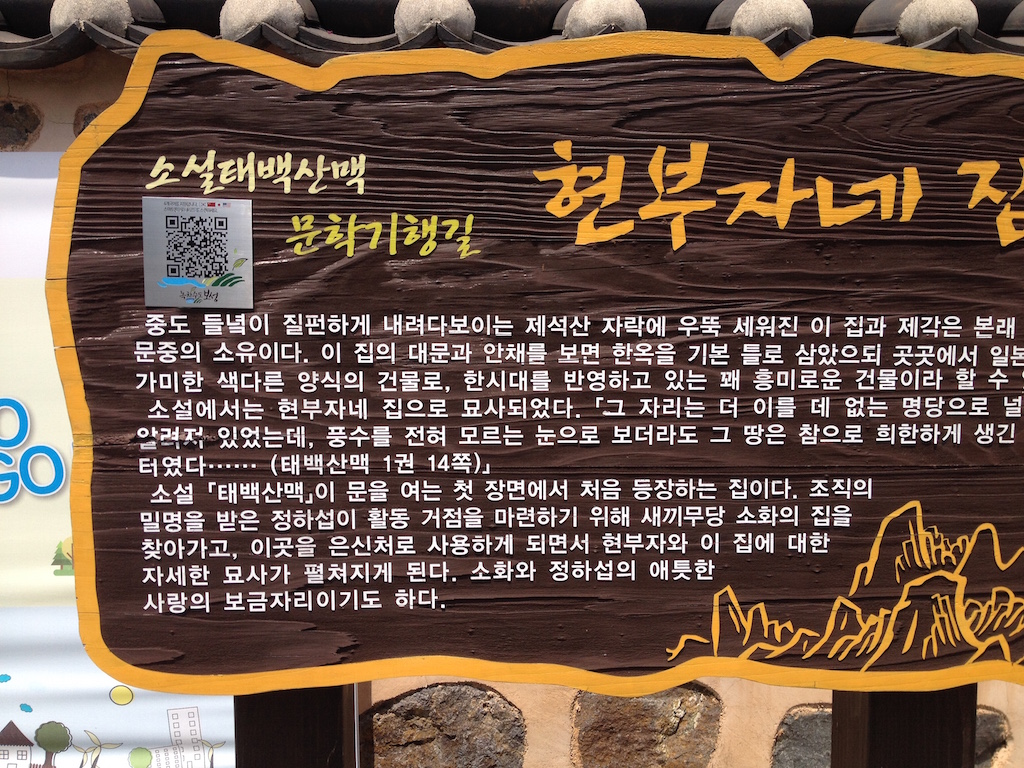 소설태백산맥
문학기행길
현부자네 집
보성
중도 들녘이 질펀하게 내려다보이는 제석산 자락에 우뚝 세워진 이 집과 제각은 본래
문중의 소유이다. 이 집의 대문과 안채를 보면 한옥을 기본 틀로 삼았으되 곳곳에서 일본
가미한 색다른 양식의 건물로, 한시대를 반영하고 있는 꽤 흥미로운 건물이라 할 수
소설에서는 현부자네 집으로 묘사되었다. 「그 자리는 더 이를 데 없는 명당으로 널
알려져 있었는데, 풍수를 전혀 모르는 눈으로 보더라도 그 땅은 참으로 희한하게 생긴
터였다…… (태백산맥 1권 14쪽)」
소설 「태백산맥」이 문을 여는 첫 장면에서 처음 등장하는 집이다. 조직의
밀명을 받은 정하섭이 활동 거점을 마련하기 위해 새끼무당 소화의 집을
찾아가고, 이곳을 은신처로 사용하게 되면서 현부자와 이 집에 대한
자세한 묘사가 펼쳐지게 된다. 소화와 정하섭의 애틋한
사랑의 보금자리이기도 하다.
GO